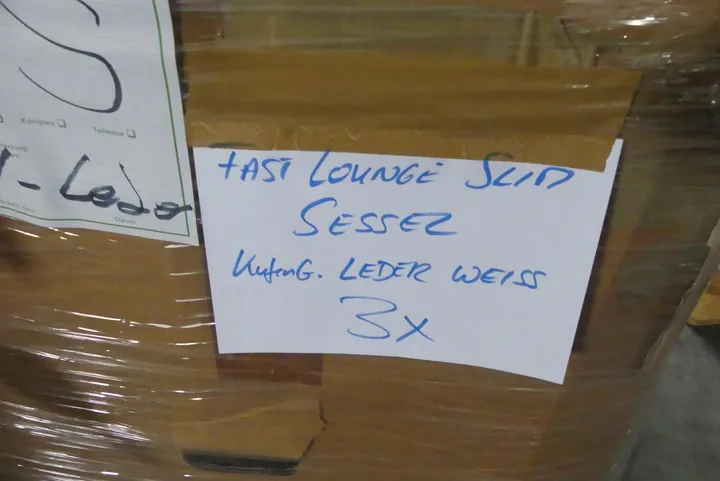 S
Komplett
Teilweise
Datum
- Leder
FAST LOUNGE SLIM
SESSEL
KufenG. LEDER WEISS
3x